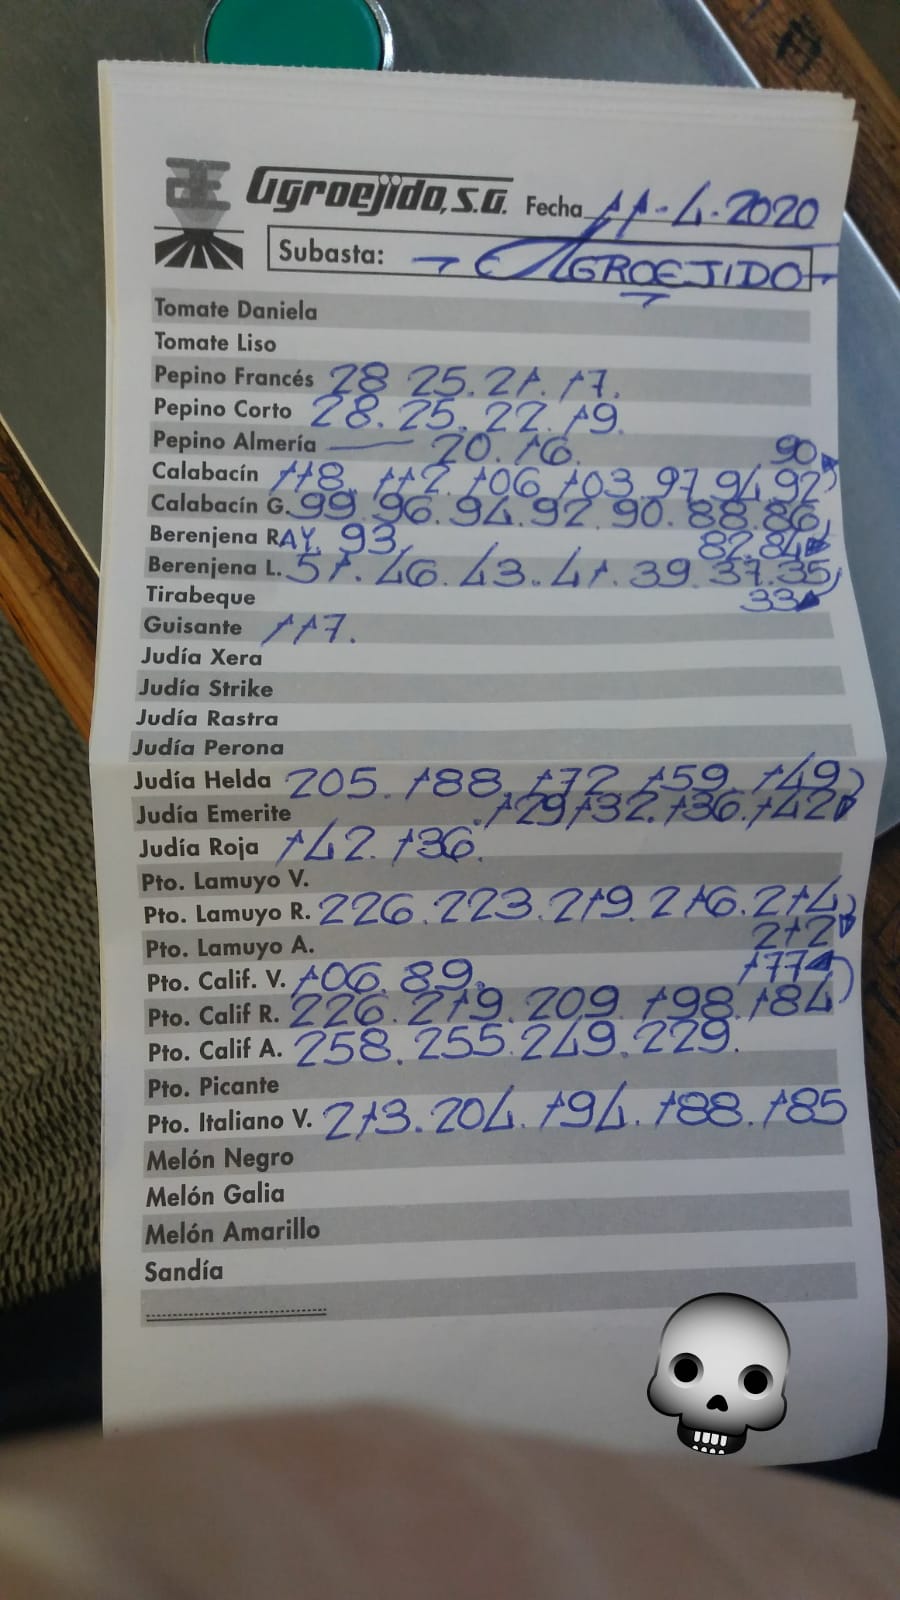 Agroejido, S.A. Fecha 11-4-2020
Subasta: AGROEJIDO
Tomate Daniela
Tomate Liso
Pepino Francés 28 25. 21. 17.
Pepino Corto 28. 25. 22. 19.
Pepino Almería — 20. 16. 90
Calabacín 118. 112. 106 103 97 94 92
Calabacín G. 99 96. 94. 92. 90. 88. 86
Berenjena RAY. 93 82. 84
Berenjena L. 51. 46. 43. 41. 39. 37. 35
Tirabeque 33
Guisante 117.
Judía Xera
Judía Strike
Judía Rastra
Judía Perona
Judía Helda 205. 188. 172. 159. 149
Judía Emerite .129 132. 136. 142
Judía Roja 142. 136.
Pto. Lamuyo V.
Pto. Lamuyo R. 226. 223. 219. 216. 214
Pto. Lamuyo A. 212
Pto. Calif. V. 106. 89. 177
Pto. Calif R. 226. 219. 209. 198. 184
Pto. Calif A. 258. 255. 249. 229.
Pto. Picante
Pto. Italiano V. 213. 204. 194. 188. 185
Melón Negro
Melón Galia
Melón Amarillo
Sandía